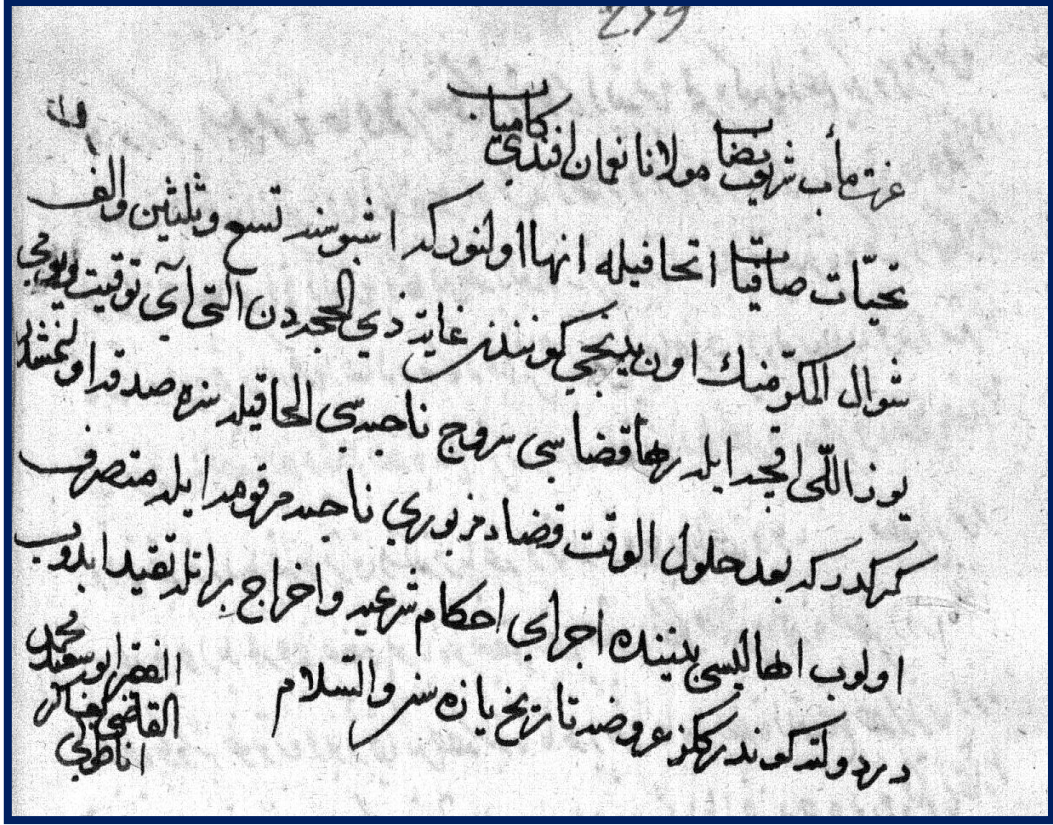 239
عزتمآب شريعت نصاب مولانا نعمان افندي كامياب
تحيات صافيات اتحافيله انها اولنور كه اشبو سنه تسع وثلثين والف
شوال المكرمنك اون يدنجي كوننده غايت ذي الحجه دن التي آي توقيت ويومي
يوز اللي اقچه ايله رها قضاسي سروج ناحيه سي الحاقيله سزه صدقه اولنمشدر
كركدركه بعد حلول الوقت قضاء مزبوره ناحيه مرقومه ايله متصرف
اولوب اهاليسي بيننده اجراي احكام شرعيه واخراج براتله تقيد ايدوب
در دولته كوندره كز عروضه تاريخ يازه سز والسلام
الفقير ابو سعيد محمد
القاضي بعساكر
اناطولي